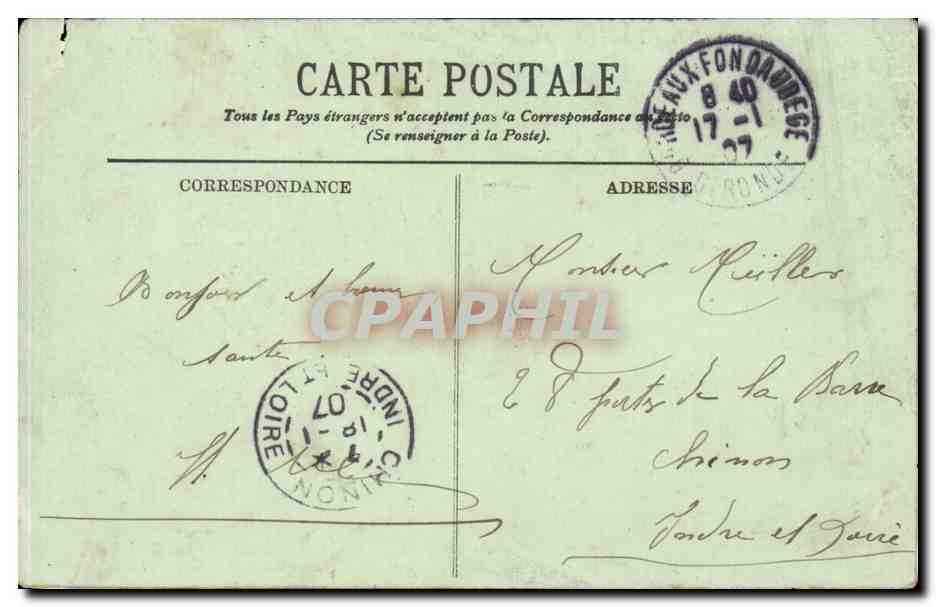 CARTE POSTALE
Tous les Pays étrangers n'acceptent pas la Correspondance au Recto
(Se renseigner à la Poste).
BORDEAUX-FONDAUDEGE
8 40
17 -1
07
GIRONDE
CORRESPONDANCE
ADRESSE
Bonjour et bonne
santé.
CHINON
INDRE ET LOIRE
18 -1
07
Monsieur Müller
28 porte de la Barre
Chinon
Indre et Loire
CPAPHIL